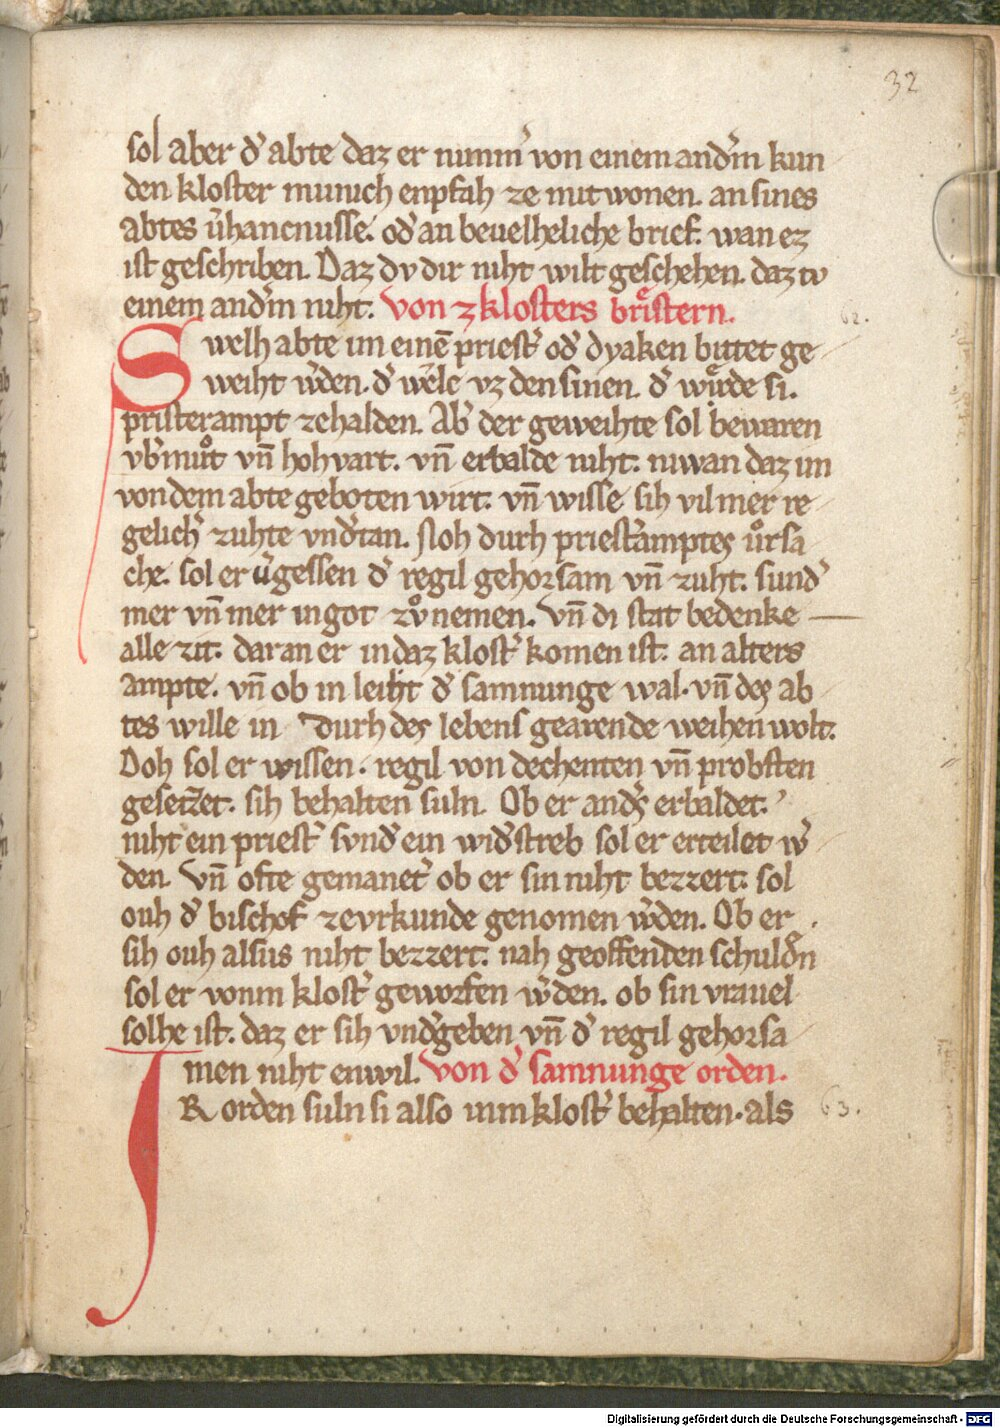 32
sol aber d͛ abte daz er nimm͛ von einem and͛m kun
den kloster munich enpfah ze mitwonen. an sines
abtes v͛hancnusse. od͛ an beuelheliche brief. wan ez
ist geschriben. Daz dv dir niht wilt geschehen. daz tv
einem and͛m niht. von z klosters brͤistern.
62.
Swelh abte im einē priest͛ od͛ dyaken bittet ge
weiht w͛den. d͛ w͛ele vz den sinen. d͛ wuͤrde si.
pristerampt zehalden. Ab͛ der geweihte sol bewaren
vb͛muͦt vn̄ hohvart. vn̄ erbalde niht. niwan daz im
von dem abte geboten wirt. vn̄ wisse sih vil mer re
gelich͛ zuhte vnd͛tan. Noh durh priest͛amptes uͦrsa
che. sol er v͛gessen d͛ regil gehorsam vn̄ zuht. sund͛
mer vn̄ mer in got zvͦnemen. Vn̄ di stat bedenke
alle zit. daran er in daz klost͛ komen ist. an alters
ampte. vn̄ ob in leiht d͛ samnunge wal. vn̄ des ab
tes wille in durh des lebens gearende weihen wolt.
Doh sol er wissen. regil von dechenten vn̄ probsten
gesetzet. sih behalten suln. Ob er and͛s erbaldet.
niht ein priest͛ svnd͛ ein wid͛streb sol er erteilet w͛
den. Vn̄ ofte gemanet͛ ob er sin niht bezzert. sol
ouh d͛ bischof zevrkunde genomen w͛den. Ob er
sih ouh alsus niht bezzert. nah geoffenden schuld͛n
sol er vonm klost͛ geworfen w͛den. ob sin vrauel
solhe ist. daz er sih vnd͛geben vn̄ d͛ regil gehorsa
men niht enwil. von d͛ samnunge orden.
IR orden suln si also inm klost͛ behalten. als
63.
Digitalisierung gefördert durch die Deutsche Forschungsgemeinschaft - DFG